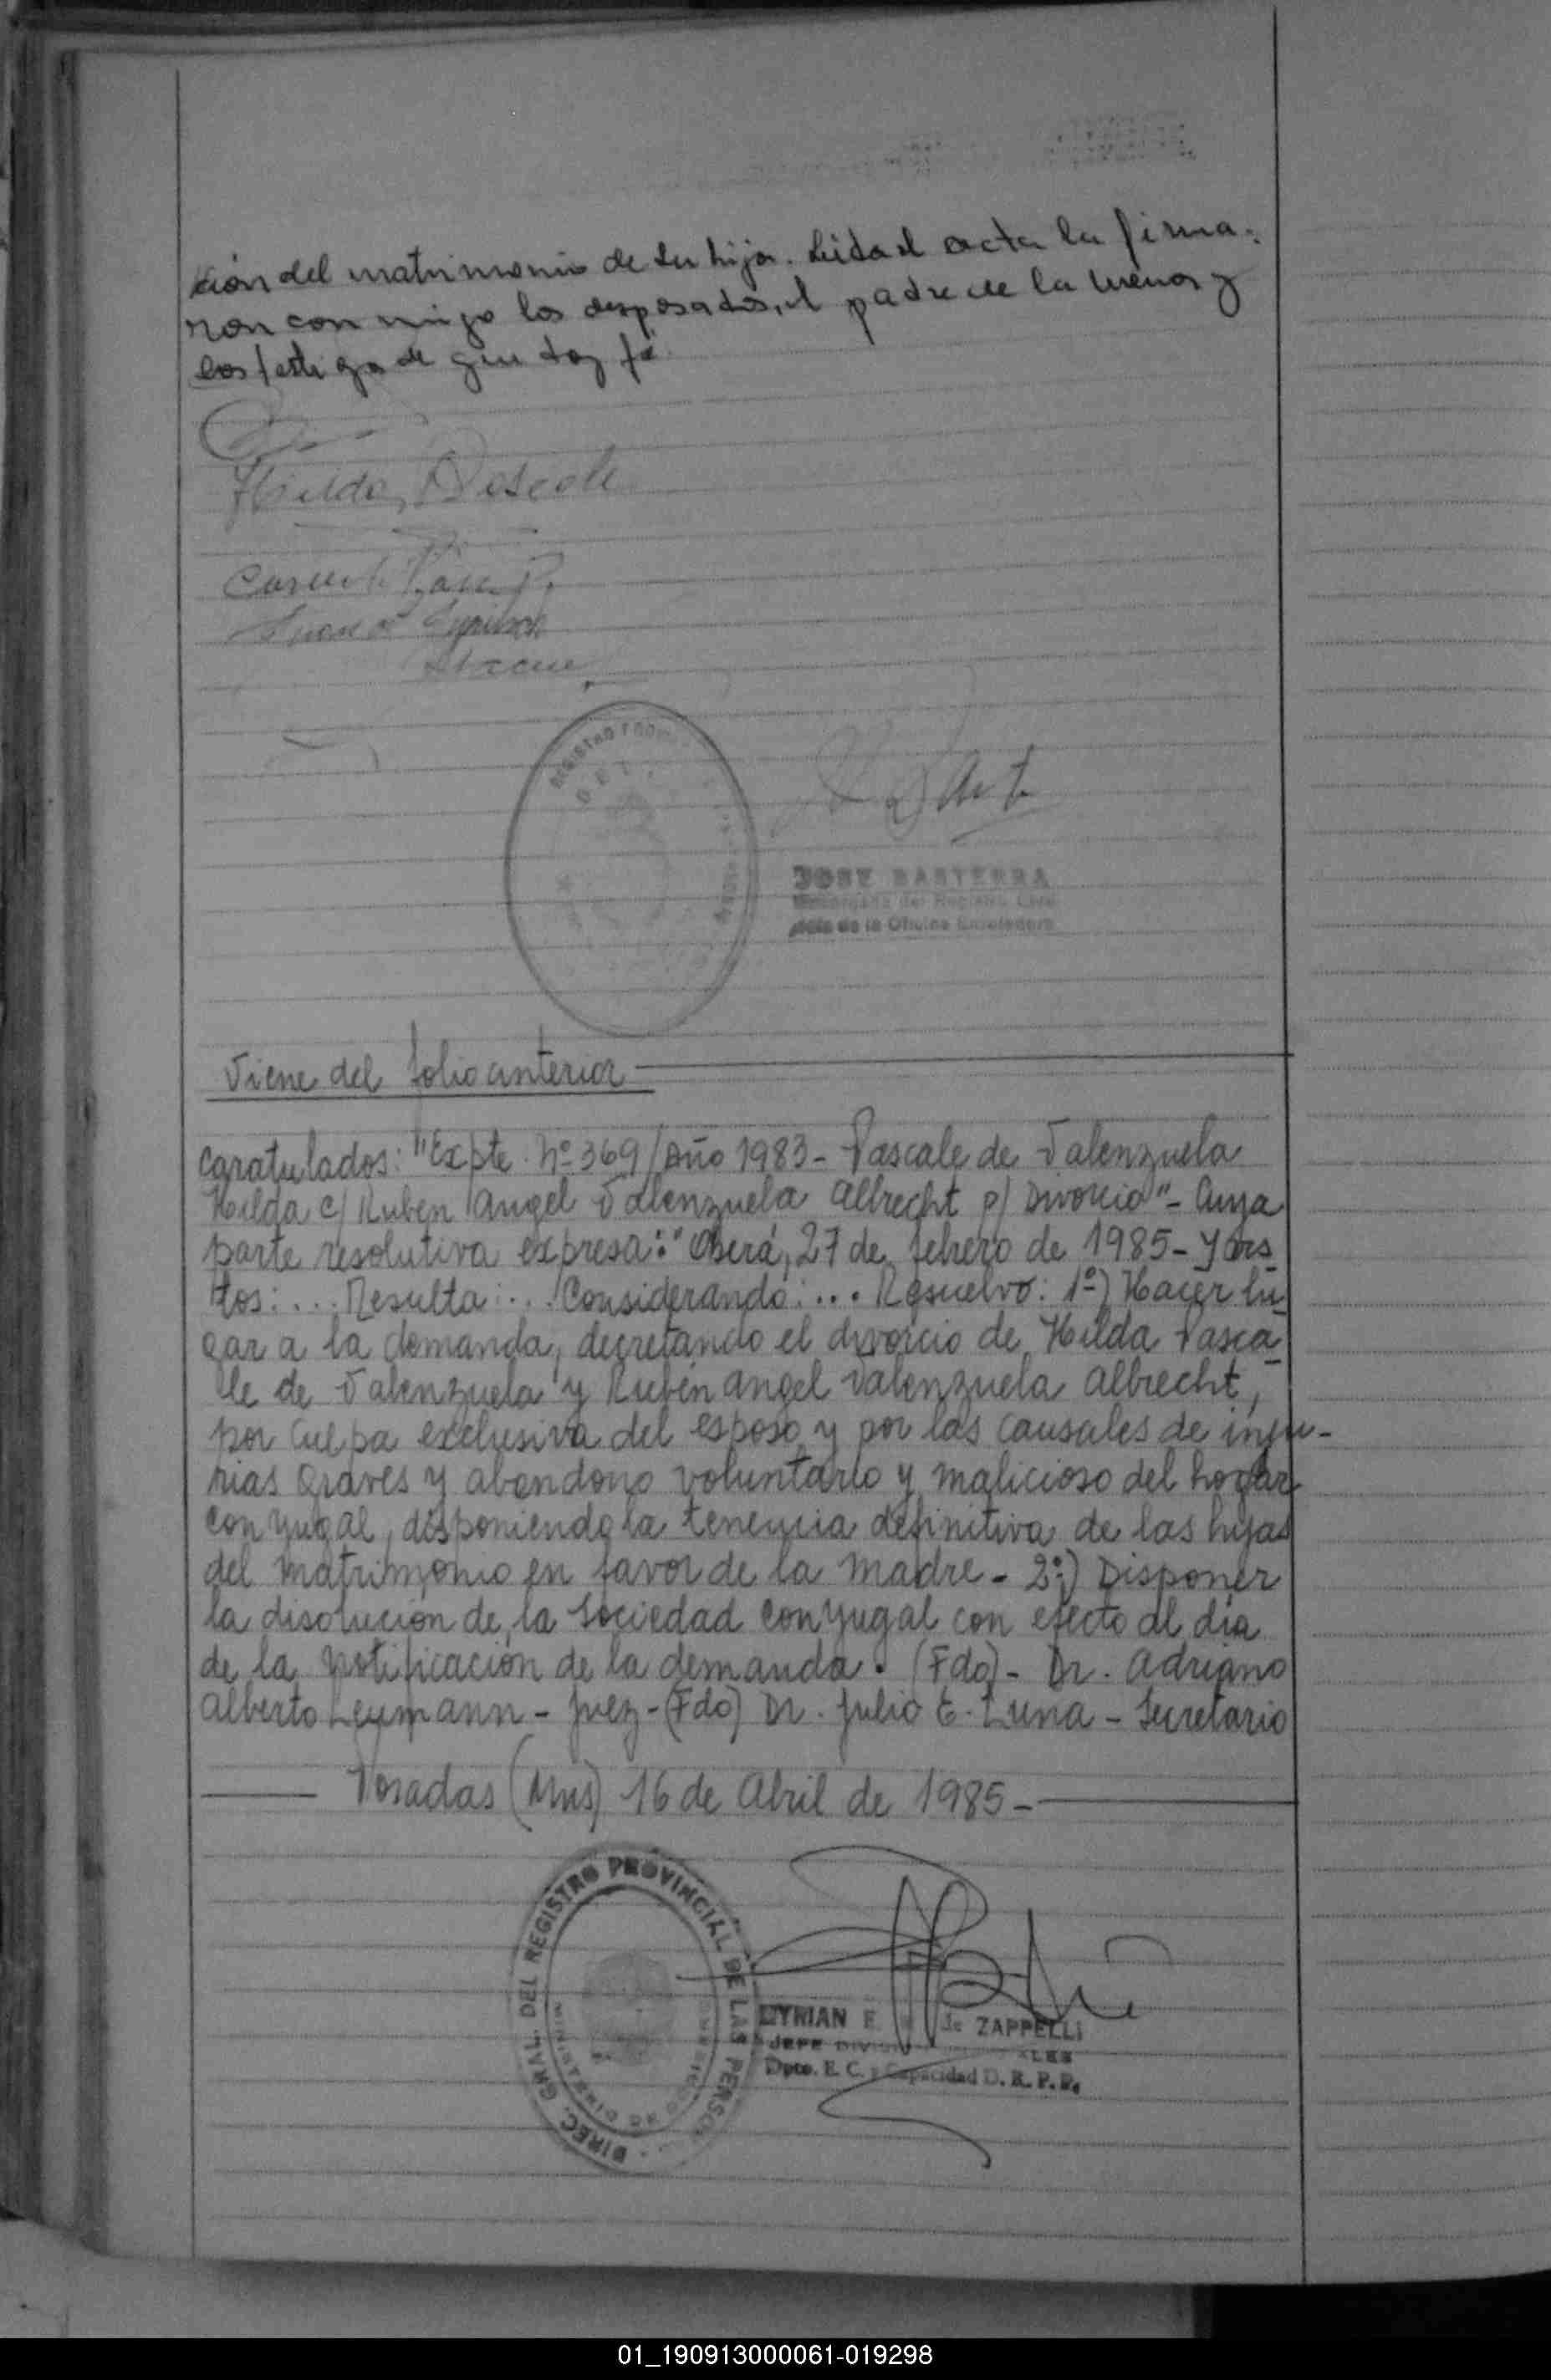 ción del matrimonio de su hija. Leida el acta la firma.
ron con migo los desposados, el padre de la menor y
los testigos de que doy fé.
Hilda Pascale
JOSE BASTERRA
Encargado del Registro Civil
Jefe de la Oficina Enroladora
Viene del folio anterior
caratulados: "Expte. Nº 369/Año 1983 - Pascale de Valenzuela
Hilda c/ Ruben Angel Valenzuela Albrecht p/ Divorcio" - Cuya
parte resolutiva expresa: "Oberá, 27 de febrero de 1985 - Y vis
tos: ... Resulta: ... Considerando: ... Resuelvo: 1º) Hacer lu
gar a la demanda, decretando el divorcio de Hilda Pasca
le de Valenzuela y Rubén Angel Valenzuela Albrecht,
por culpa exclusiva del esposo y por las causales de inju-
rias graves y abandono voluntario y malicioso del hogar
conyugal, disponiendo la tenencia definitiva de las hijas
del matrimonio en favor de la madre - 2º) Disponer
la disolución de la sociedad conyugal con efecto al día
de la notificación de la demanda. (Fdo) - Dr. Adriano
Alberto Leymann - Juez - (Fdo) Dr. Julio E. Luna - Secretario
Posadas (Mns) 16 de Abril de 1985 -
DIREC. GRAL. DEL REGISTRO PROVINCIAL DE LAS PERSO
MYRIAN E. de ZAPPELLI
JEFE DIV
Dpto. E. C. y Capacidad D. R. P. P.
01_190913000061-019298